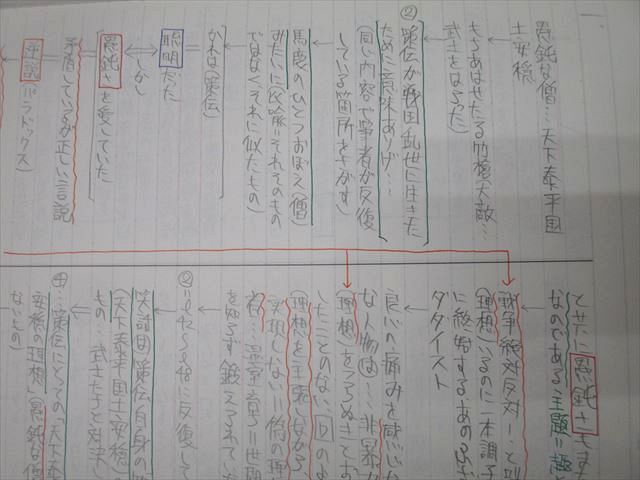 一、
愚鈍な僧…天下泰平国
土安穏
もちあはせたる竹槍大敵…
武士をはらった
②策伝が戦国乱世に生きた
ために意味ありげ…
(同じ内容で筆者が反復
している箇所をさがす)
馬鹿のひとつおぼえ(僧)
みたいに(比喩=それそのもの
ではなくそれに似たもの)
かれは(策伝)
聡明だった
しかし
愚鈍さを愛していた
矛盾しているが正しい言説
逆説(パラドックス)
と共に愚鈍さ
なのである
戦争絶対反対…と叫
(理想)
に終始する
ダダイスト
良心の痛みを感じ
な人物は…非暴力
(理想)をつらぬき
したことのない
(理想を主張しながら、
実現しない=偽の理
温室育ち=世間
を知らず鍛えられてい
②=
に反復して
笑話㊥策伝自身の
(天下泰平国土安穏
もの 武士たちと対決し
④…策伝にとっての「天下泰
安穏の理想」(愚鈍な僧
ないもの)